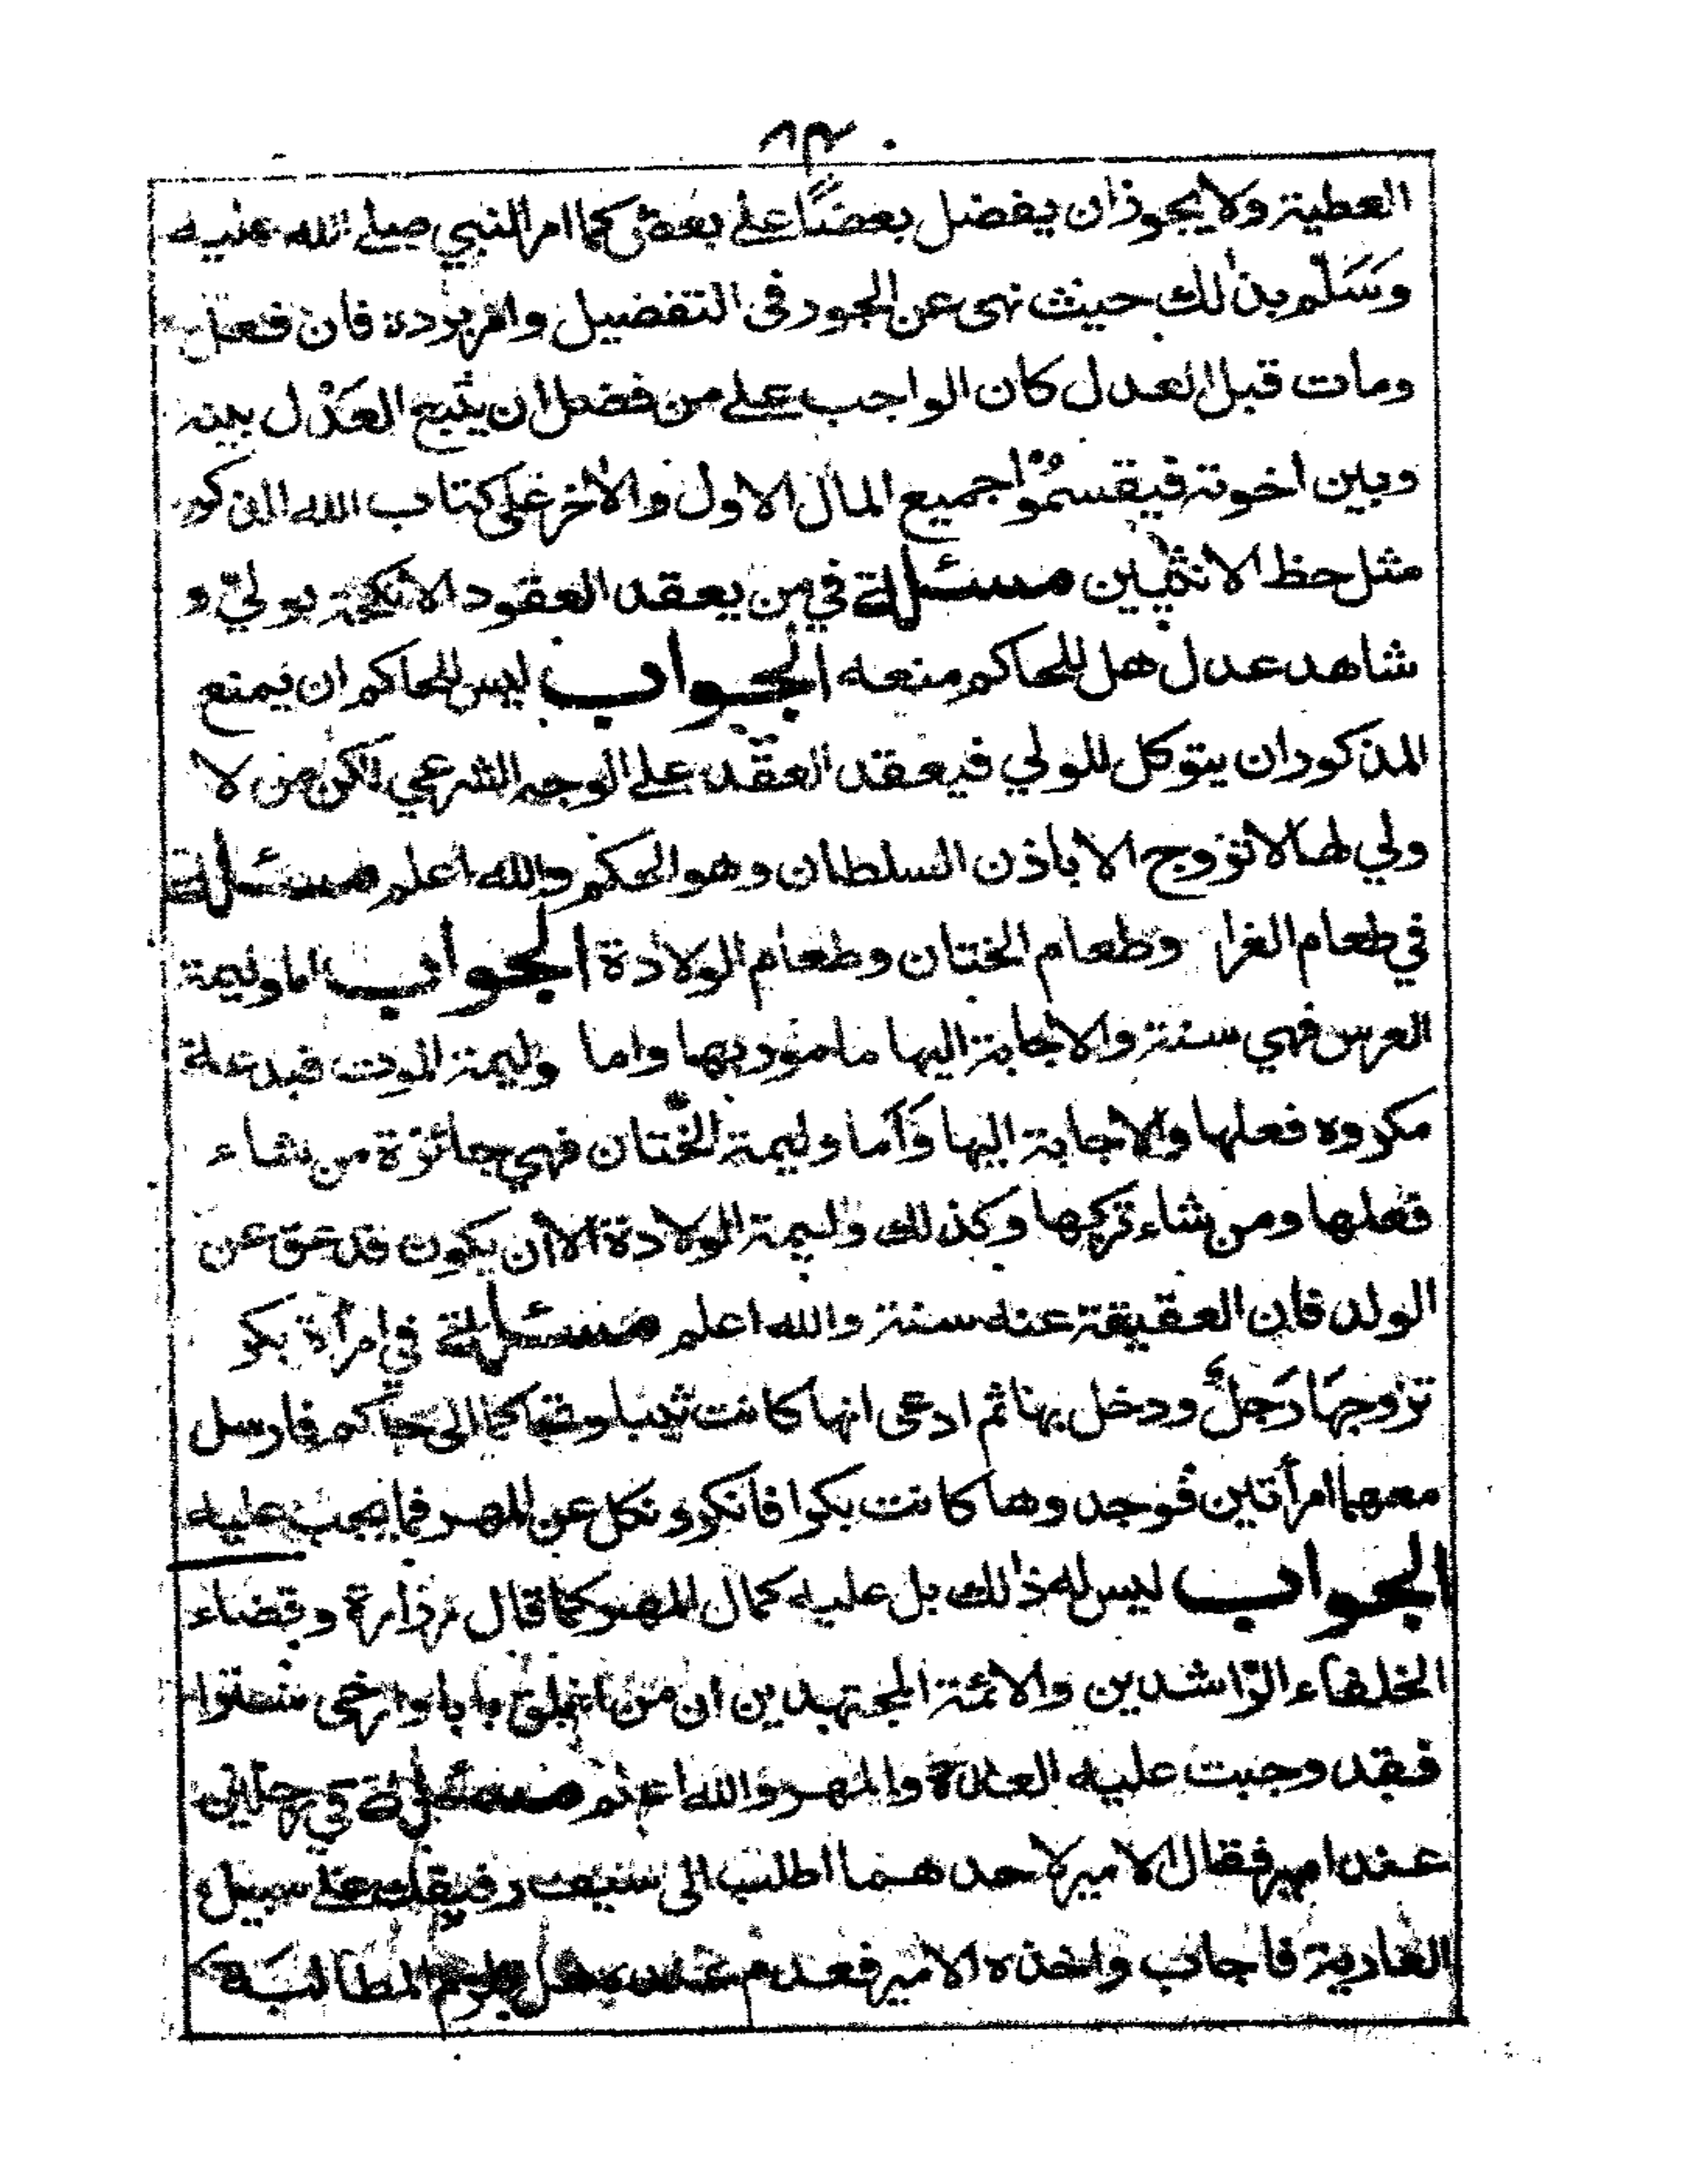 العطية ولا يجوز ان يفضل بعضًا على بعض كما امر النبي صلى الله عليه
وَسَلّم بذالك حيث نهى عن الجور فى التفضيل وامر برده فان فعل
ومات قبل العدل كان الواجب على من فضل ان يتبع العَدْل بينه
وبين اخوته فيقسمُوْا جميع المال الاول والاخر على كتاب الله الذكر
مثل حظ الانثيين مسئلة في من يعقد العقود الانكحة بوليّ و
شاهد عدل هل للحاكم منعه الجواب ليس للحاكم ان يمنع
المذكور ان يتوكل للولي فيعقد العقد على الوجه الشرعي لكن من لا
ولي لها لا تزوج الا باذن السلطان وهو الحكم والله اعلم مسئلة
في طعام الغرا وطعام الختان وطعام الولادة الجواب اما وليمة
العرس فهي سنة والاجابة اليها مامور بها واما وليمة الموت فبدعة
مكروه فعلها والاجابة اليها وَأما وليمة الختان فهي جائزة من شاء
فعلها ومن شاء تركها وكذلك وليمة الولادة الا أن يكون قد عق عن
الولد فان العقيقة عنه سنة والله اعلم مسئلة في امرأة بكر
تزوجهَا رَجلٌ ودخل بها ثم ادعى انها كانت ثيبا وتحاكما الى حاكم فارسل
معهما امرأتين فوجدوها كانت بكرا فانكر ونكل عن المهر فما يجب عليه
الجواب ليس له ذالك بل عليه كمال المهر كما قال زرارة وقضاء
الخلفاء الرّاشدين والائمة المجتهدين ان من اغلق بابا وارخى سترا
فقد وجبت عليه العدة والمهر والله اعلم مسئلة في رجلين
عند امير فقال الامير لاحدهما اطلب الى سيف رفيقك على سبيل
العارية فاجاب واخذه الامير فعدم عنده هل يلزم المطالبَة